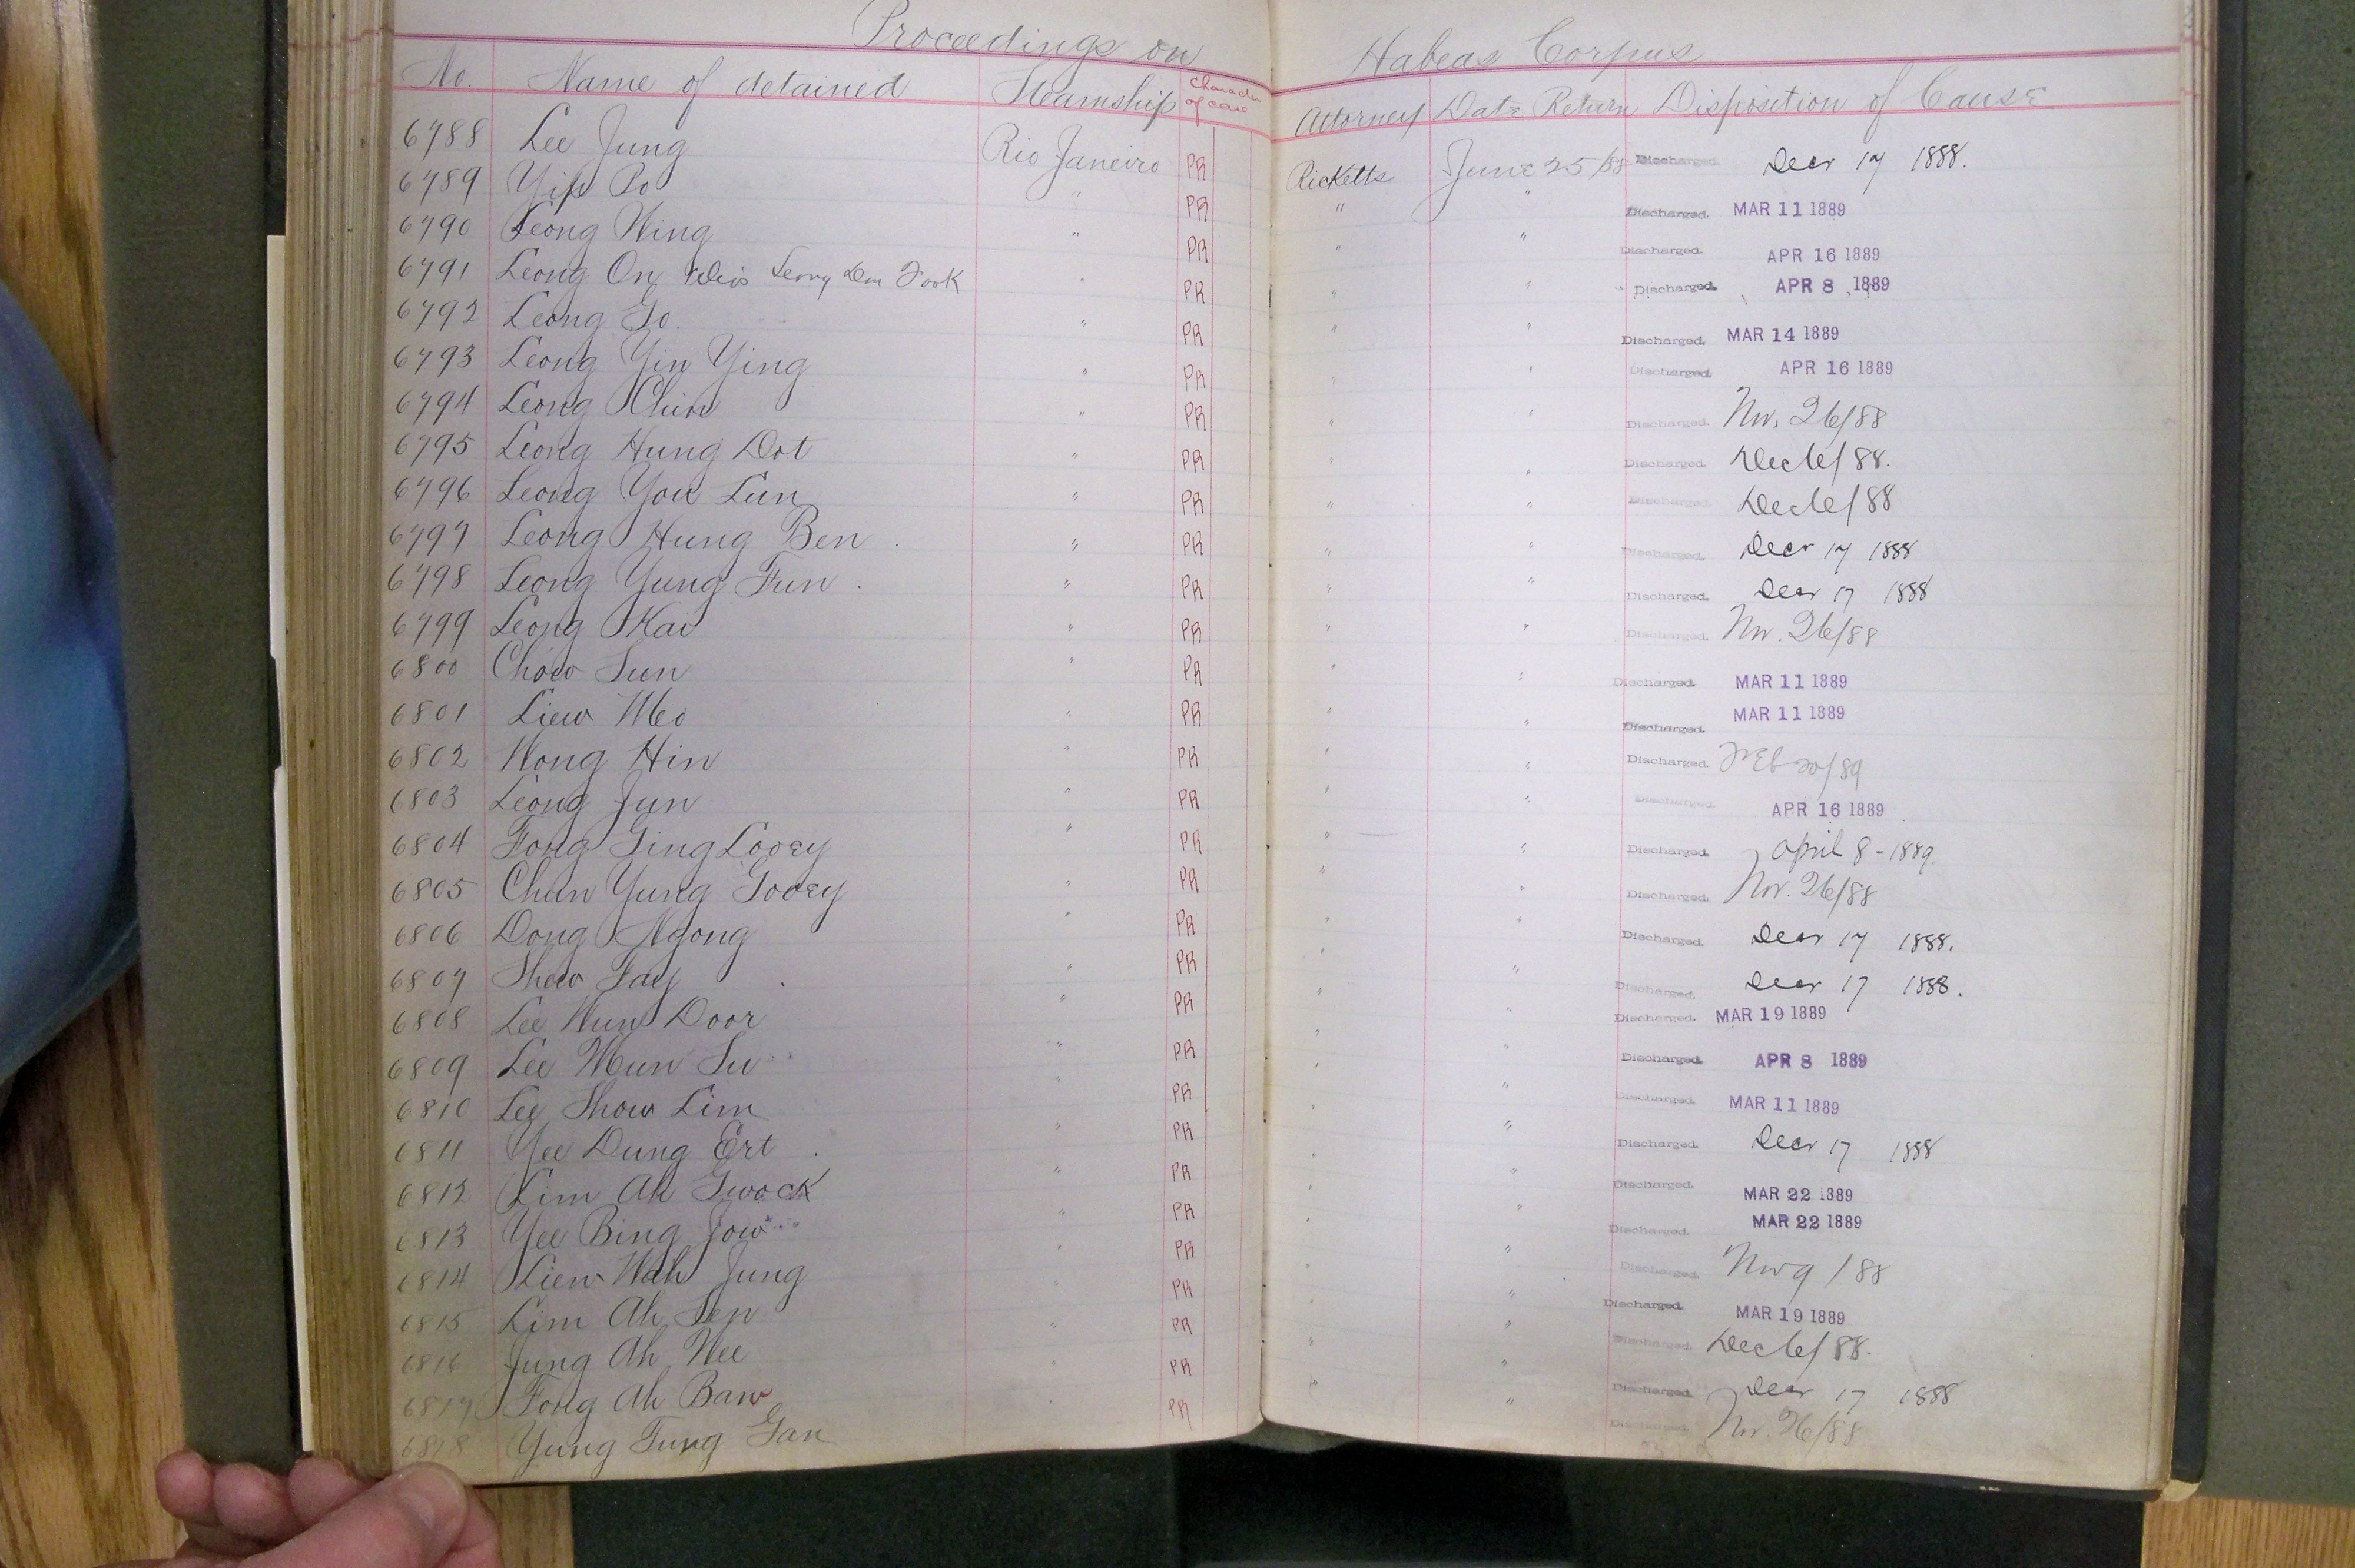 Proceedings on Habeas Corpus
No. Name of detained Steamship Character of case Attorney Date Return Disposition of Cause
6788 Lee Jung Rio Janeiro PR Ricketts June 25/88 Discharged. Decr 17 1888.
6789 Yip Po " PR " " Discharged. MAR 11 1889
6790 Leong Wing " PR " " Discharged. APR 16 1889
6791 Leong On Fook " PR " " Discharged. APR 8 1889
6792 Leong Go " PR " " Discharged. MAR 14 1889
6793 Leong Yin Ying " PR " " Discharged. APR 16 1889
6794 Leong Chin " PR " " Discharged. Nov. 26/88
6795 Leong Hung Dot " PR " " Discharged. Dec 6/88.
6796 Leong You Lun " PR " " Discharged. Dec 6/88
6797 Leong Hung Ben " PR " " Discharged. Decr 17 1888
6798 Leong Yung Fun " PR " " Discharged. Decr 17 1888
6799 Leong Kai " PR " " Discharged. Nov. 26/88
6800 Chow Sun " PR " " Discharged. MAR 11 1889
6801 Liew Meo " PR " " Discharged. MAR 11 1889
6802 Wong Hin " PR " " Discharged. Feb 20/89
6803 Leong Jun " PR " " Discharged. APR 16 1889
6804 Fong Ging Looey " PR " " Discharged. April 8 - 1889.
6805 Chun Yung Gooey " PR " " Discharged. Nov. 26/88
6806 Dong Ngong " PR " " Discharged. Decr 17 1888.
6807 Shew Fay " PR " " Discharged. Decr 17 1888.
6808 Lee Wun Door " PR " " Discharged. MAR 19 1889
6809 Lee Mun Su " PR " " Discharged. APR 8 1889
6810 Lee Show Lim " PR " " Discharged. MAR 11 1889
6811 Yee Dung Ert " PR " " Discharged. Decr 17 1888
6812 Lim Ah Gwock " PR " " Discharged. MAR 22 1889
6813 Yee Bing Jow " PR " " Discharged. MAR 22 1889
6814 Liew Wah Jung " PR " " Discharged. Nov 9/88
6815 Lim Ah Sen " PR " " Discharged. MAR 19 1889
6816 Jung Ah Wee " PR " " Discharged. Dec 6/88.
6817 Fong Ah Baw " PR " " Discharged. Decr 17 1888
6818 Yung Tung Gan " PR " " Discharged. Nov. 26/88